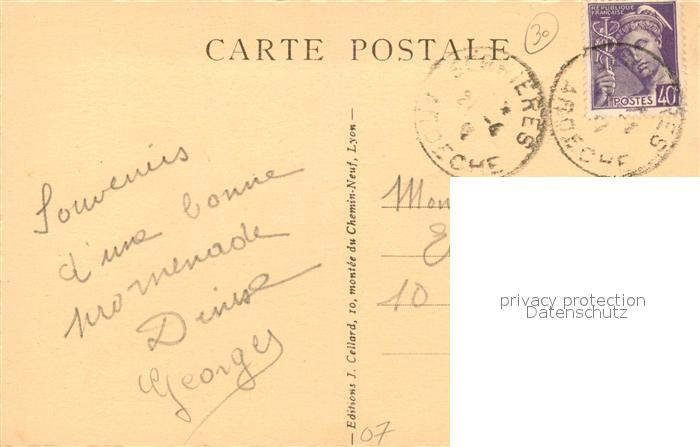 CARTE POSTALE
30
RÉPUBLIQUE
FRANÇAISE
POSTES 40
ARDÈCHE
ARDÈCHE
Souvenirs
d'une bonne
promenade
Denise
Georges
Mon
10
— Editions J. Cellard, 10, montée du Chemin-Neuf, Lyon —
07
privacy protection
Datenschutz